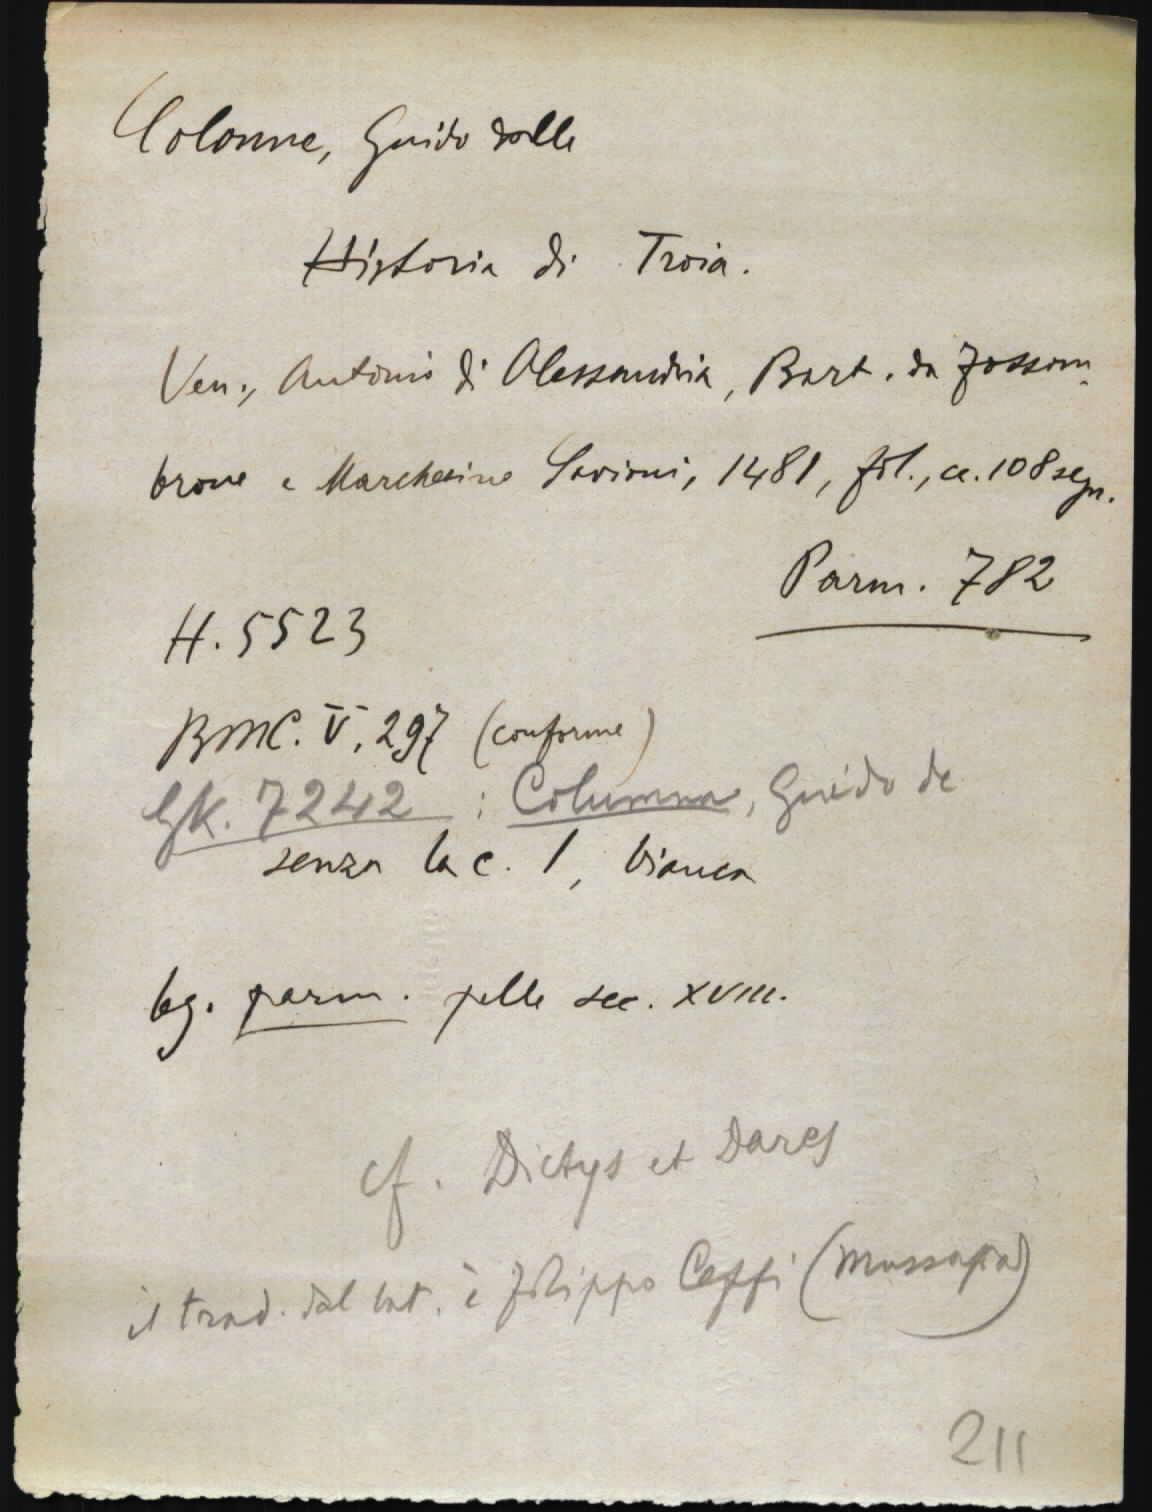 Colonne, Guido dalle
Historia di Troia.
Ven., Antonio di Alessandria, Bart. da Fossom-
brone e Marchesino Savioni, 1481, fol., cc. 108 segn.
Parm. 782
H. 5523
BMC. V, 297 (conforme)
GK. 7242 : Columna, Guido de
senza la c. 1, bianca
leg. parm. pelle sec. XVIII.
cf. Dictys et Dares
il trad. dal lat. è Filippo Ceffi (Mussafia)
211